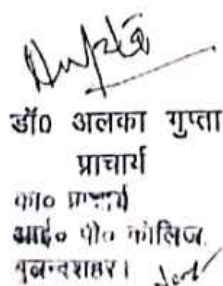 Gupta
डॉ० अलका गुप्ता
प्राचार्य
का० प्राचार्य
आई० पी० कॉलिज
बुलन्दशहर।